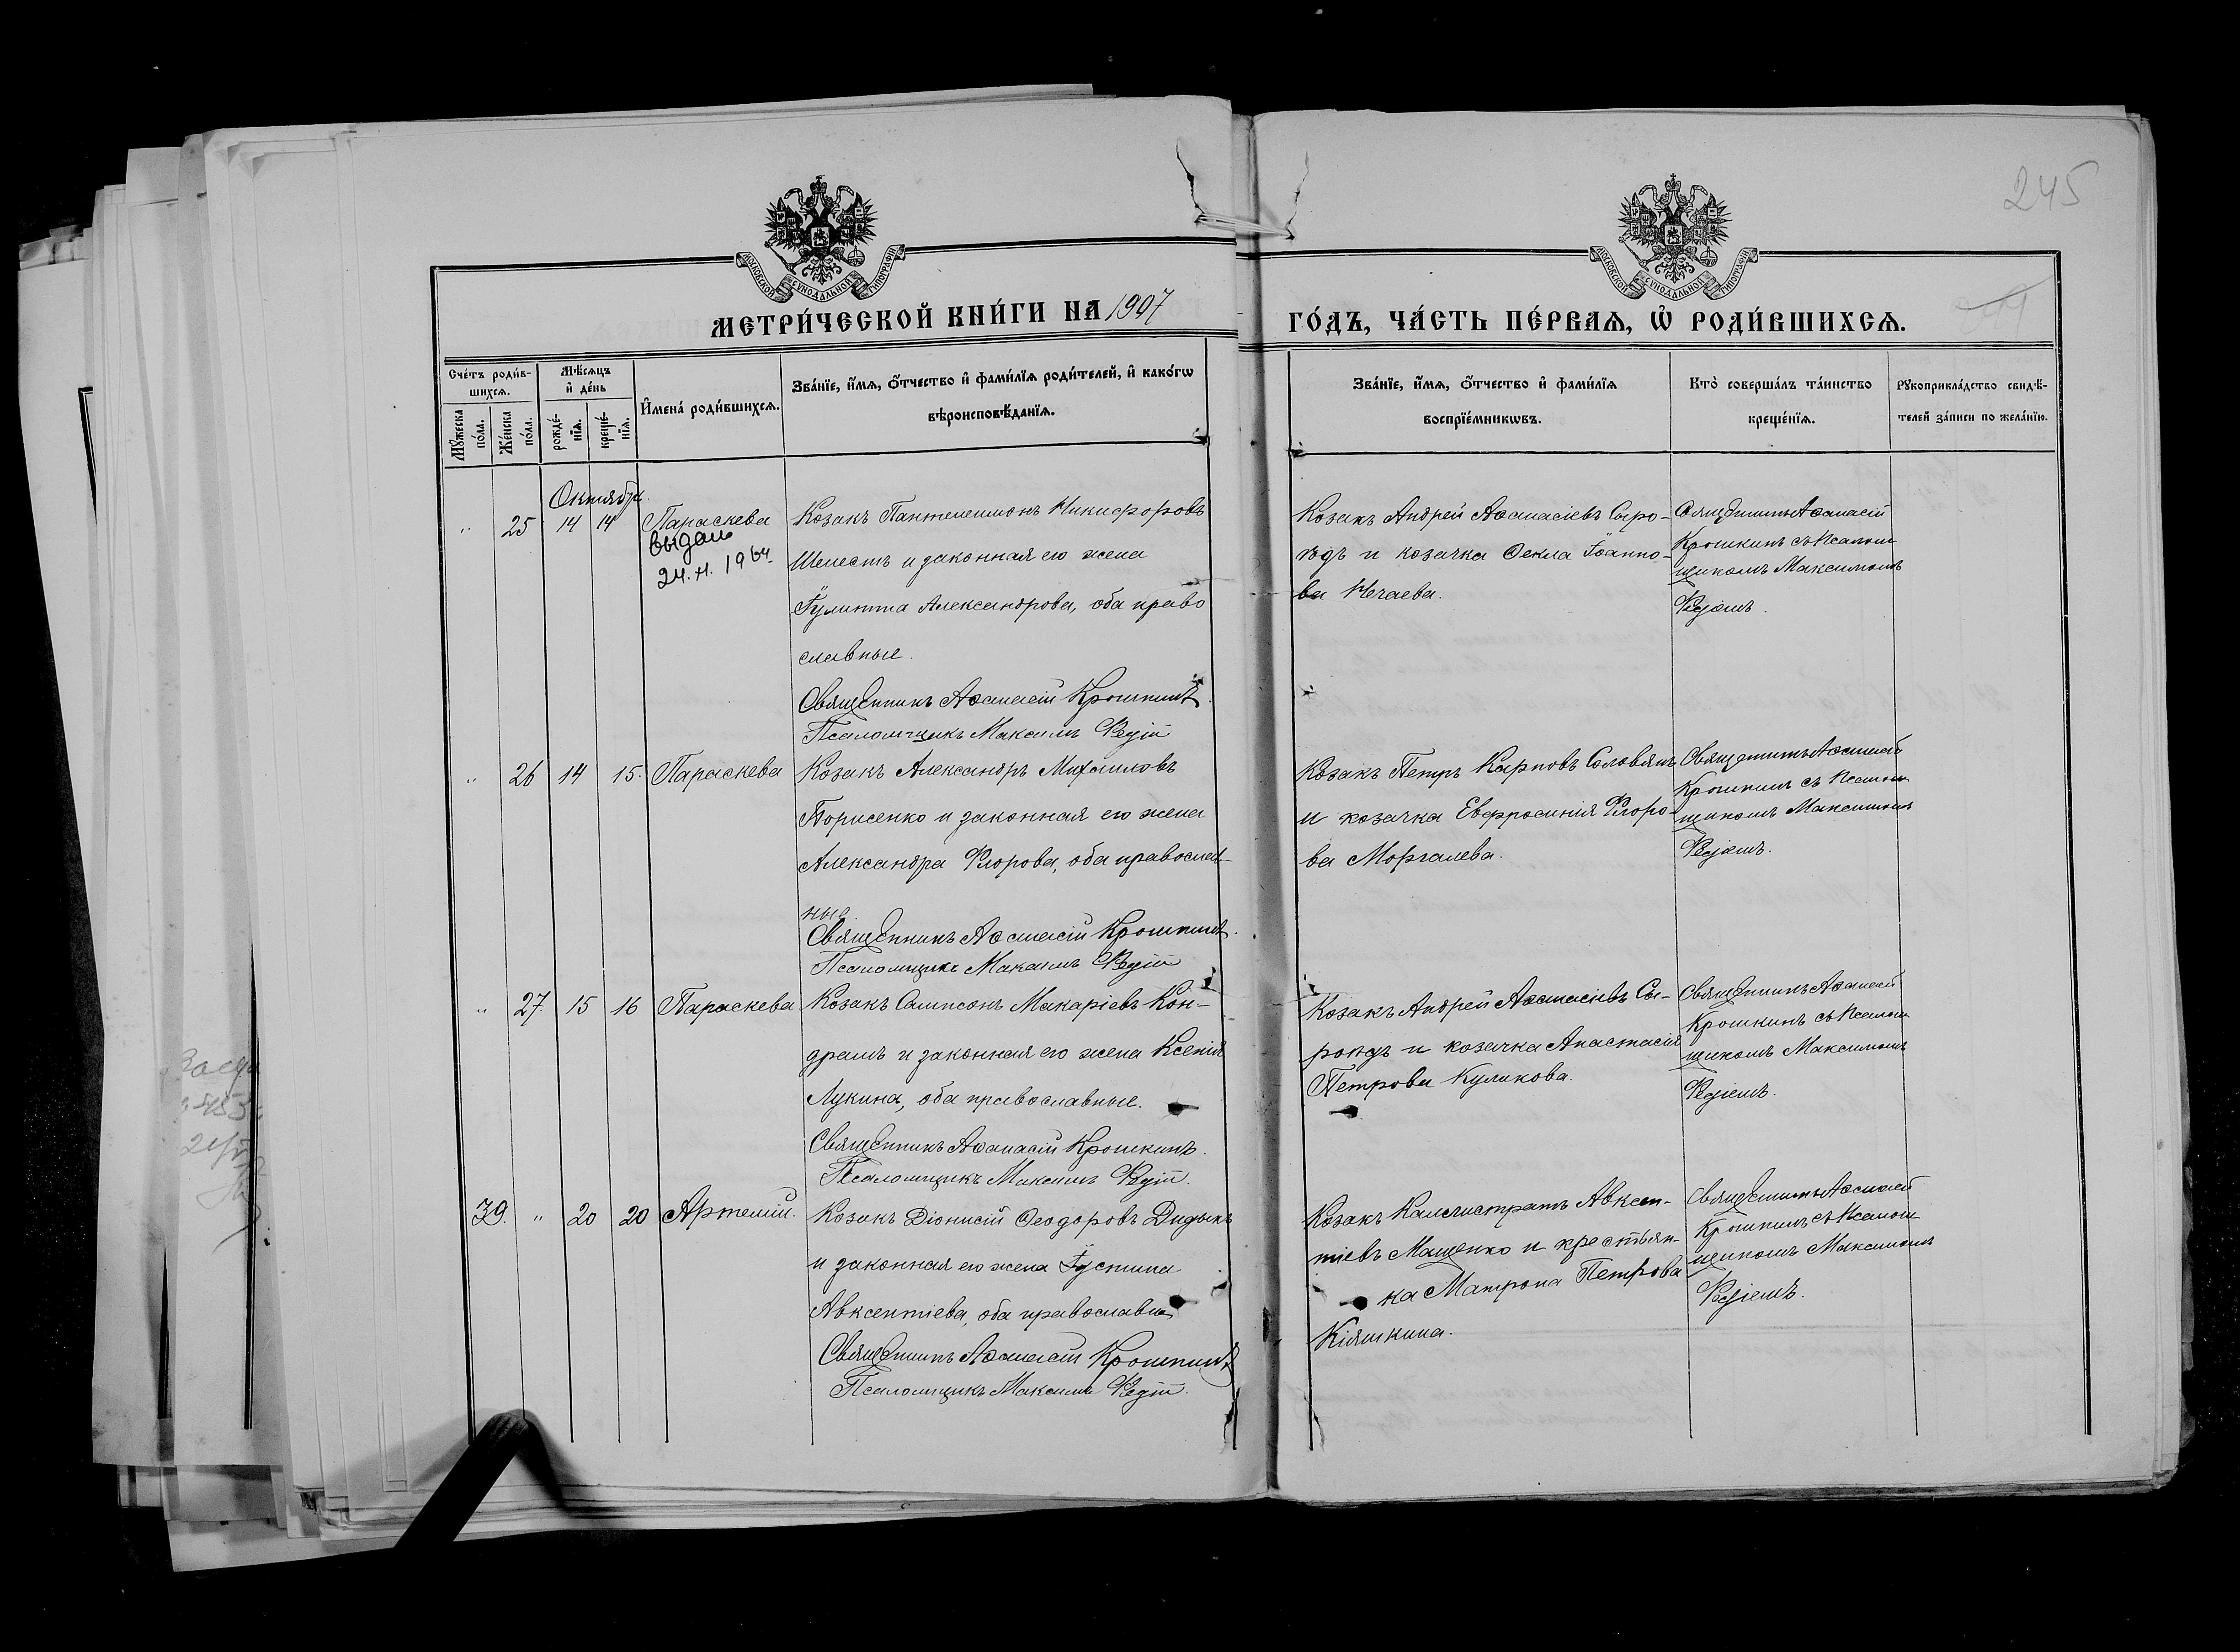 245
МОСКОВСКОЙ СѴНОДАЛЬНОЙ ТИПОГРАФІИ
МОСКОВСКОЙ СѴНОДАЛЬНОЙ ТИПОГРАФІИ
МЕТРИ́ЧЕСКОЙ КНИ́ГИ НА 1907
ГО́ДЪ, ЧА́СТЬ ПЕ́РВАѦ, Ѡ҆ РОДИ́ВШИХСѦ.
Сче́тъ роди́в-
шихсѧ.
Мꙋ́жеска по́ла.
Же́нска по́ла.
Мѣ́сѧцъ и҆ де́нь
рожде́-нїѧ.
креще́-нїѧ.
И҆мена̀ роди́вшихсѧ.
Зва́нїе, и҆́мѧ, ѻ҆́тчество и҆ фами́лїѧ роди́телей, и҆ како́гѡ
вѣроисповѣ́данїѧ.
Зва́нїе, и҆́мѧ, ѻ҆́тчество и҆ фами́лїѧ
воспрїе́мникѡвъ.
Кто̀ соверша́лъ та́инство
креще́нїѧ.
Рꙋкоприкла́дство свидѣ́-
телей за́писи по жела́нїю.
Октябрь.
" 25 14 14 Параскева
выдан
24. 1964
Козакъ Пантелеимонъ Никифоровъ
Шелестъ и законная его жена
Іулитта Александрова, оба право
славные.
Священникъ Аѳанасій Крошкинъ.
Псаломщикъ Максимъ Редій
Козакъ Андрей Аѳанасіевъ Сыро-
ѣдъ и козачка Ѳекла Іоанно-
ва Нечаева.
Священникъ Аѳанасій
Крошкинъ съ псалом
щикомъ Максимомъ
Редіемъ.
" 26 14 15. Параскева
Козакъ Александръ Михаиловъ
Борисенко и законная его жена
Александра Флорова, оба православ-
ные.
Священникъ Аѳанасій Крошкинъ.
Псаломщикъ Максимъ Редій
Козакъ Петръ Карповъ Соловянъ
и козачка Евфросинія Флоро-
ва Моргалева.
Священникъ Аѳанасій
Крошкинъ съ псалом
щикомъ Максимомъ
Редіемъ.
" 27. 15 16 Параскева
Козакъ Сампсонъ Макаріевъ Кон-
драшъ и законная его жена Ксенія
Лукина, оба православные.
Священникъ Аѳанасій Крошкинъ.
Псаломщикъ Максимъ Редій.
Козакъ Андрей Аѳанасіевъ Сы-
роѣдъ и козачка Анастасія
Петрова Куликова.
Священникъ Аѳанасій
Крошкинъ съ псалом
щикомъ Максимомъ
Редіемъ.
39. " 20 20 Артемій.
Козакъ Діонисій Ѳеодоровъ Дидыкъ
и законная его жена Іустина
Авксентіева, оба православн
Священникъ Аѳанасій Крошкинъ
Псаломщикъ Максимъ Редій.
Козакъ Каллистратъ Авксен-
тіевъ Мащенко и крестьян-
ка Матрона Петрова
Кіяшкина.
Священникъ Аѳанасій
Крошкинъ съ псалом
щикомъ Максимомъ
Редіемъ.